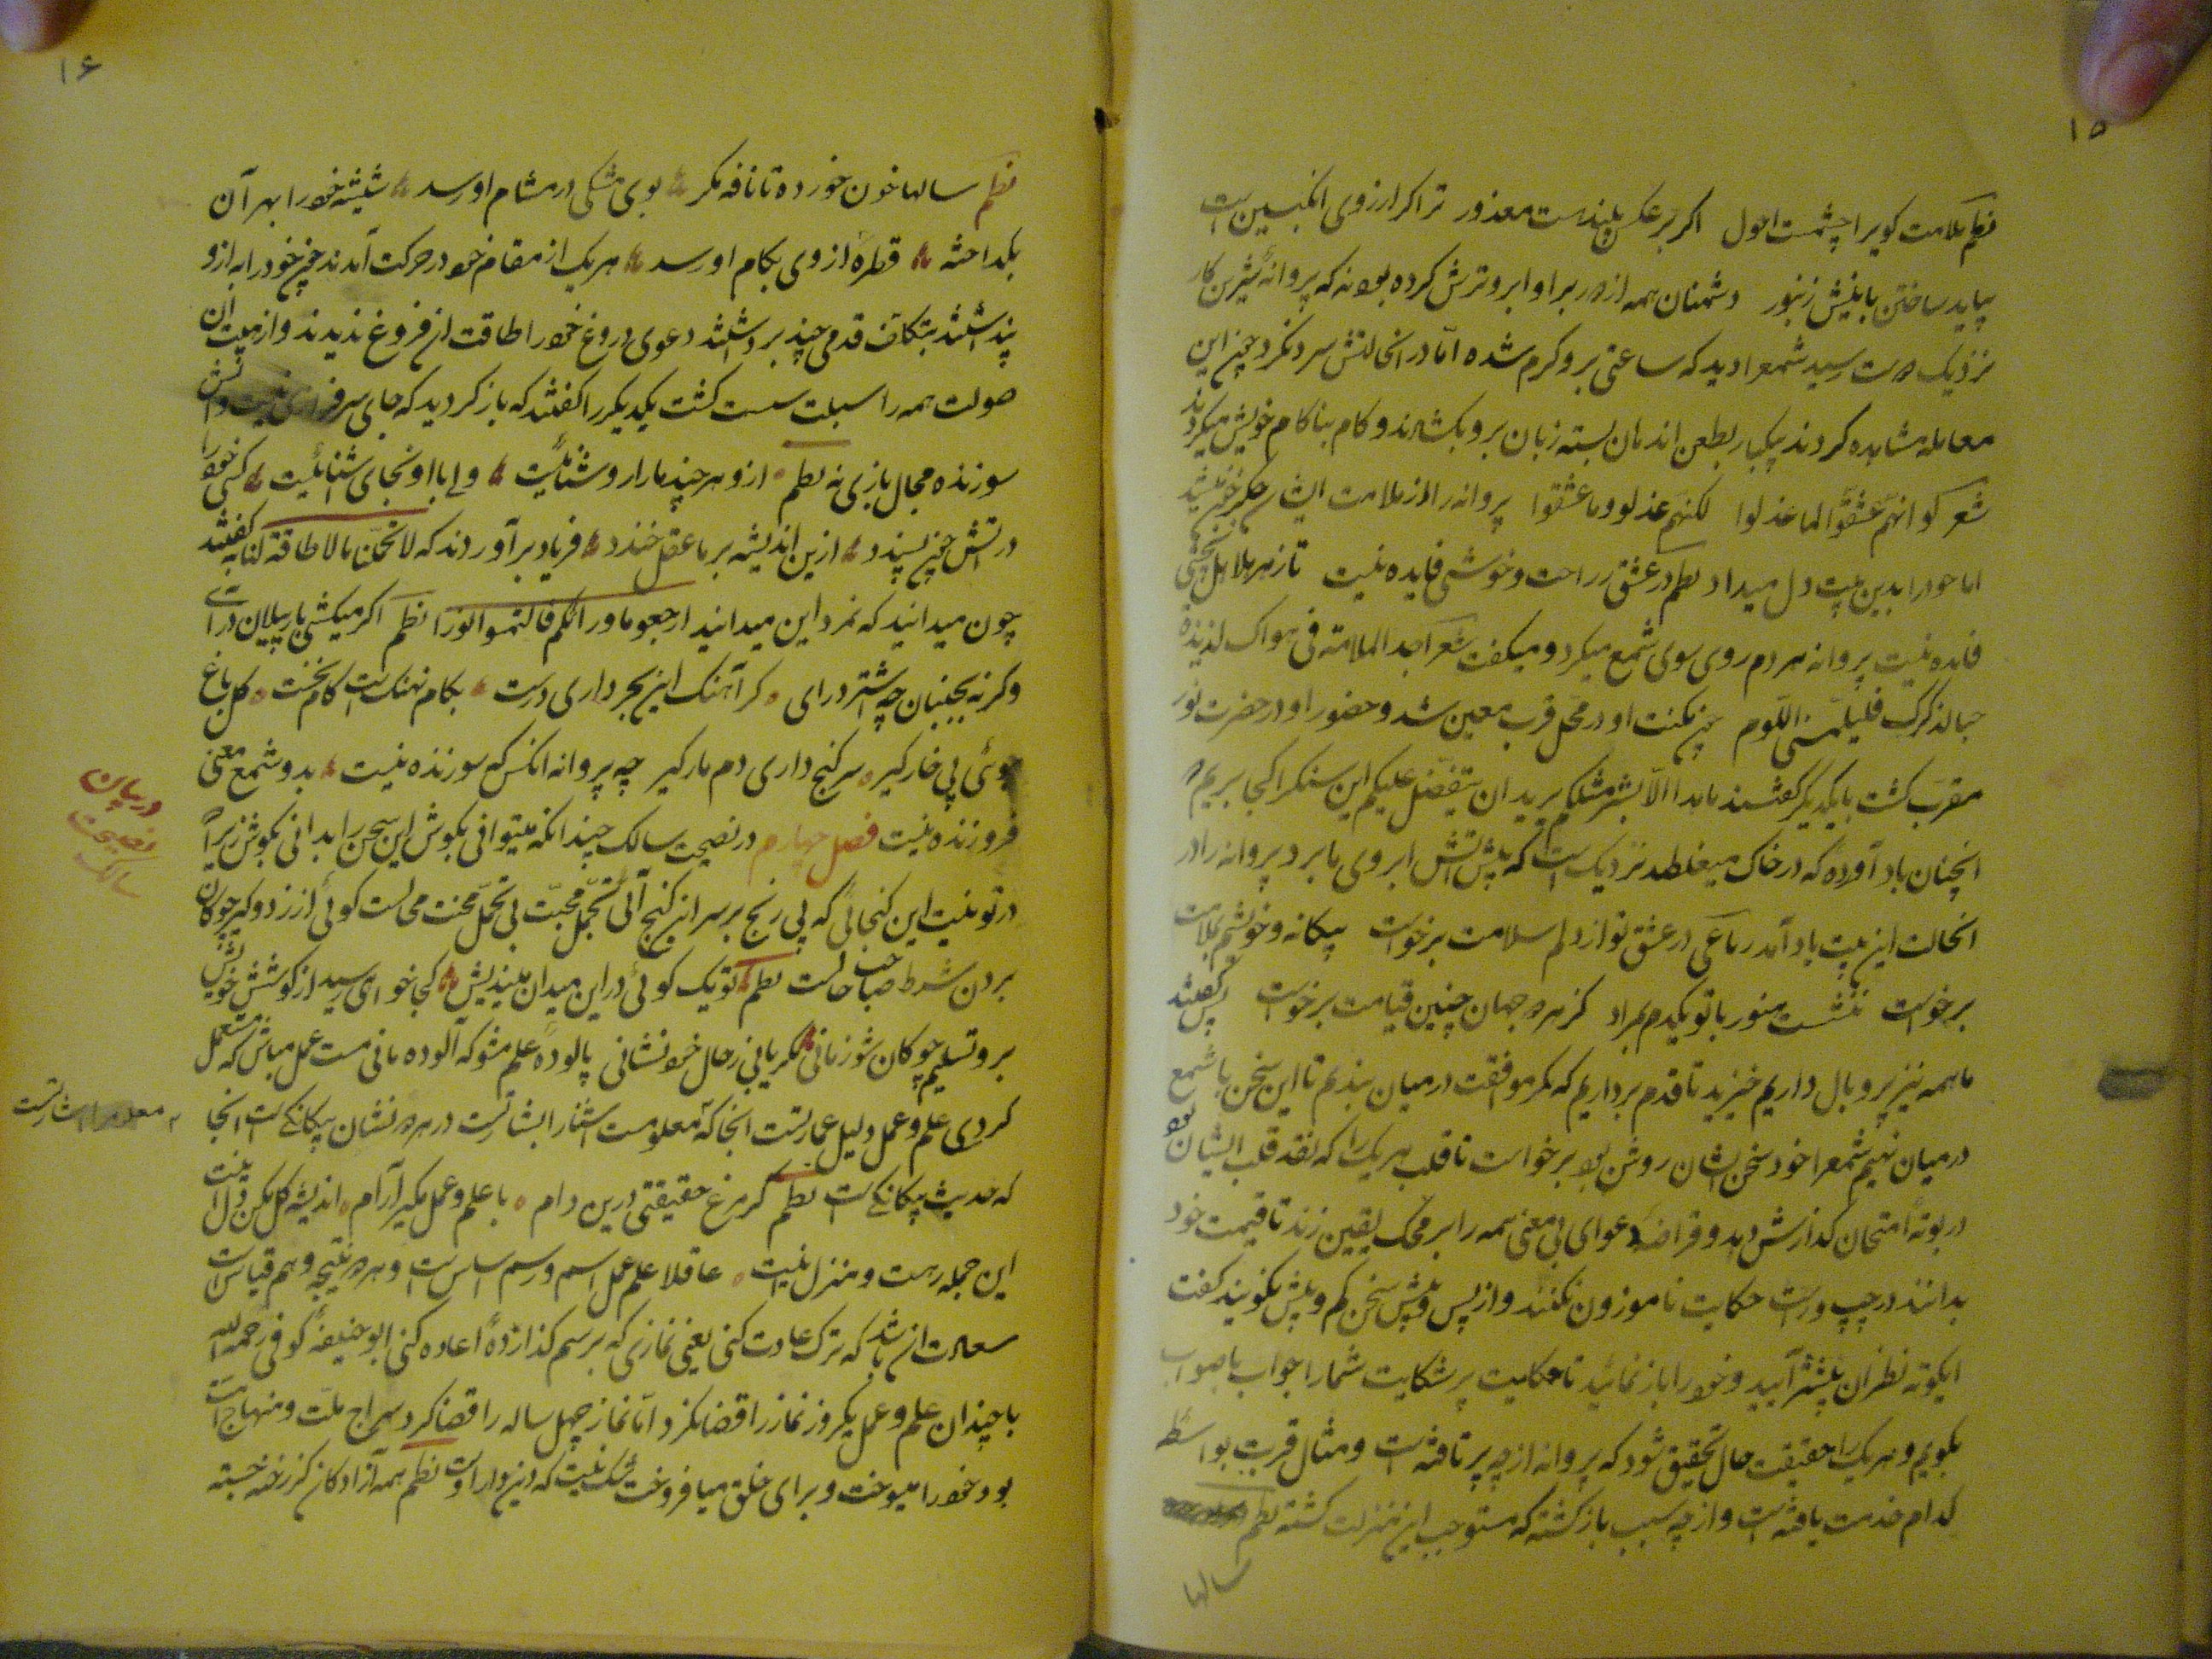 ۱۵
نظم ملامت کویرا چشمست احول اکر بر عکس بیندست معذور ترا کر ارزوی انکبین است
بباید ساختن با نیش زنبور دشمنان همه از در براو ابرو ترش کرده بودند که پروانه شیرین کار
نزدیک دست رسید شمع را دید که ساعتی برو کرم شده اما در انحالتش سرد نکرد چون این
معامله مشاهده کردند یکبار بطعن اندمان بسته زبان برو بکشادند و کام بناکام خویش میکردند
شعر کو انهم عشقوا لما عذلوا لکنهم عذلوا وما عشقوا پروانه را از ملامت ایشان جکر خون شد
اما خودرا بدین بیت دل میداد نظم در عشق ز راحت و خوشی فایده نیست تا زهر بلاهل نچشی
فایده نیست پروانه هر دم روی سوی شمع میکرد و میکفت شعر اجد الملامة فی هواک لذیذة
حبا لذکرک فلیلمنی اللوم چون بمکنت او در محل قرب معین شد و حضور او در حضرت نور
مقرب کشت با یکدیکر کفتند ما هذا الا بشر مثلکم یرید ان یتفضل علیکم این سنکرا کجا بریم و
انچنان باد آورده که در خاک میغلطد نزدیک است که پیش آتش ابروی ما برد پروانه را در
انحالت این بیت یاد آمد رباعی در عشق تو از دلم سلامت برخواست بیکانه و خویشم بملامت
برخواست ننشست هنوز با تو یکدم بمراد کز هر جهان چنین قیامت برخواست پس کفتند
ما همه نیز پر و بال داریم خیزید تا قدم برداریم که مکر موافقت در میان بندیم تا این سخن با شمع
در میان نهیم شمعرا خود سخن ایشان روشن بود برخواست تا قلب هر یک را که نقد قلب ایشان بود
در بوتهٔ امتحان کدازش دهد و قراضهٔ دعوای بی معنی همه را بر محک یقین زند تا قیمت خود
بدانند در چپ و راست حکایت ناموزون نکنند و از پس و پیش سخن کم و بیش نکویند کفت
ایکوته نظران پیشتر آیید و خود را باز نمائید تا حکایت پر شکایت شما را جواب با صواب
بکویم و هر یک را حقیقت حال تحقیق شود که پروانه از چه پر تافته است و مثال قربت بواسطه
کدام خدمت یافته است و از چه سبب باز کشته که مستوجب این منزلت کشته نظم
سالها
۱۶
نظم سالها خون خورده تا نافه مکر بوی مشکی در مشام او رسد شیشه خود را بهر آن
بکداخته قطرهٔ از وی بکام او رسد هر یک از مقام خود در حرکت آمدند خود را به ازو
پنداشتند بتکلف قدمی چند برداشتند دعوی دروغ خود را طاقت ان فروغ ندیدند و از هیبت ان
صولت همه را سبلت سست کشت یکدیکر را کفتند که باز کردید که جای سرفرازی نیست و آتش
سوزنده مجال بازی نه نظم ازو هر چند ما را روشنائیست ولی با او نه جای شنائیست کسی خود را
در آتش چون پسندد ازین اندیشه بر ما عقل خندد فریاد برآوردند که لا تحملنا ما لا طاقة لنا به کفتند
چون میدانید که نمرد این میدانید ارجعوا وراءکم فالتمسوا نورا نظم اکر میکشی بار پیلان درآی
وکرنه بجنبان چه اشتر درای کر آهنک این بحر داری درست بکام نهنک است کام نخست کل باغ
جوئی پی خار کیر سر کنج داری دم مار کیر چه پروانه انکس که سوزنده نیست بدو شمع معنی
فروزنده نیست فصل چهارم در نصیحت سالک چندانکه میتوانی بکوش این سخن را بدانی بکوش زیرا
در تو نیست این کنجائی که بی رنج بر سر این کنج آئی تجمل محبت بی تحمل محنت محالست کوئی از زد و کیر چوکان
بردن شرط صاحب حالست نظم تو یک کوئی در این میدان بیندیش کجا خواهی رسید از کوشش خویش
برو تسلیم چوکان شو زمانی مکر یابی ز حال خود نشانی پالودهٔ علم مشو که آلوده مانی مست عمل مباش که مستعمل
کردی علم و عمل دلیل عمارتست انجا که معلومست اشارا بشارتست در هر دو نشان بیکانکی است انجا
که حدیث بیکانکی است نظم کر مرغ حقیقتی درین دام با علم و عمل مکیر آرام اندیشه کل مکن دل انست
این جمله رهست و منزل نیست عاقلا علم عمل اسم و رسم اساس است و هر دو نتیجه وهم قیاس است
سعادت ان باشد که ترک عادت کنی یعنی نمازی که برسم کذاردهٔ اعاده کنی ابو حنیفه کوفی رحمه الله
با چندان علم و عمل یکروز نماز را قضا نکرد اما نماز چهل ساله را قضا کرد سراج ملت و منهاج امت
بود خود را میسوخت و برای خلق میافروخت شک نیست که دین دار اوست نظم همه آزادکان کز رخنه جسته
در بیان
نصیحت
سالک